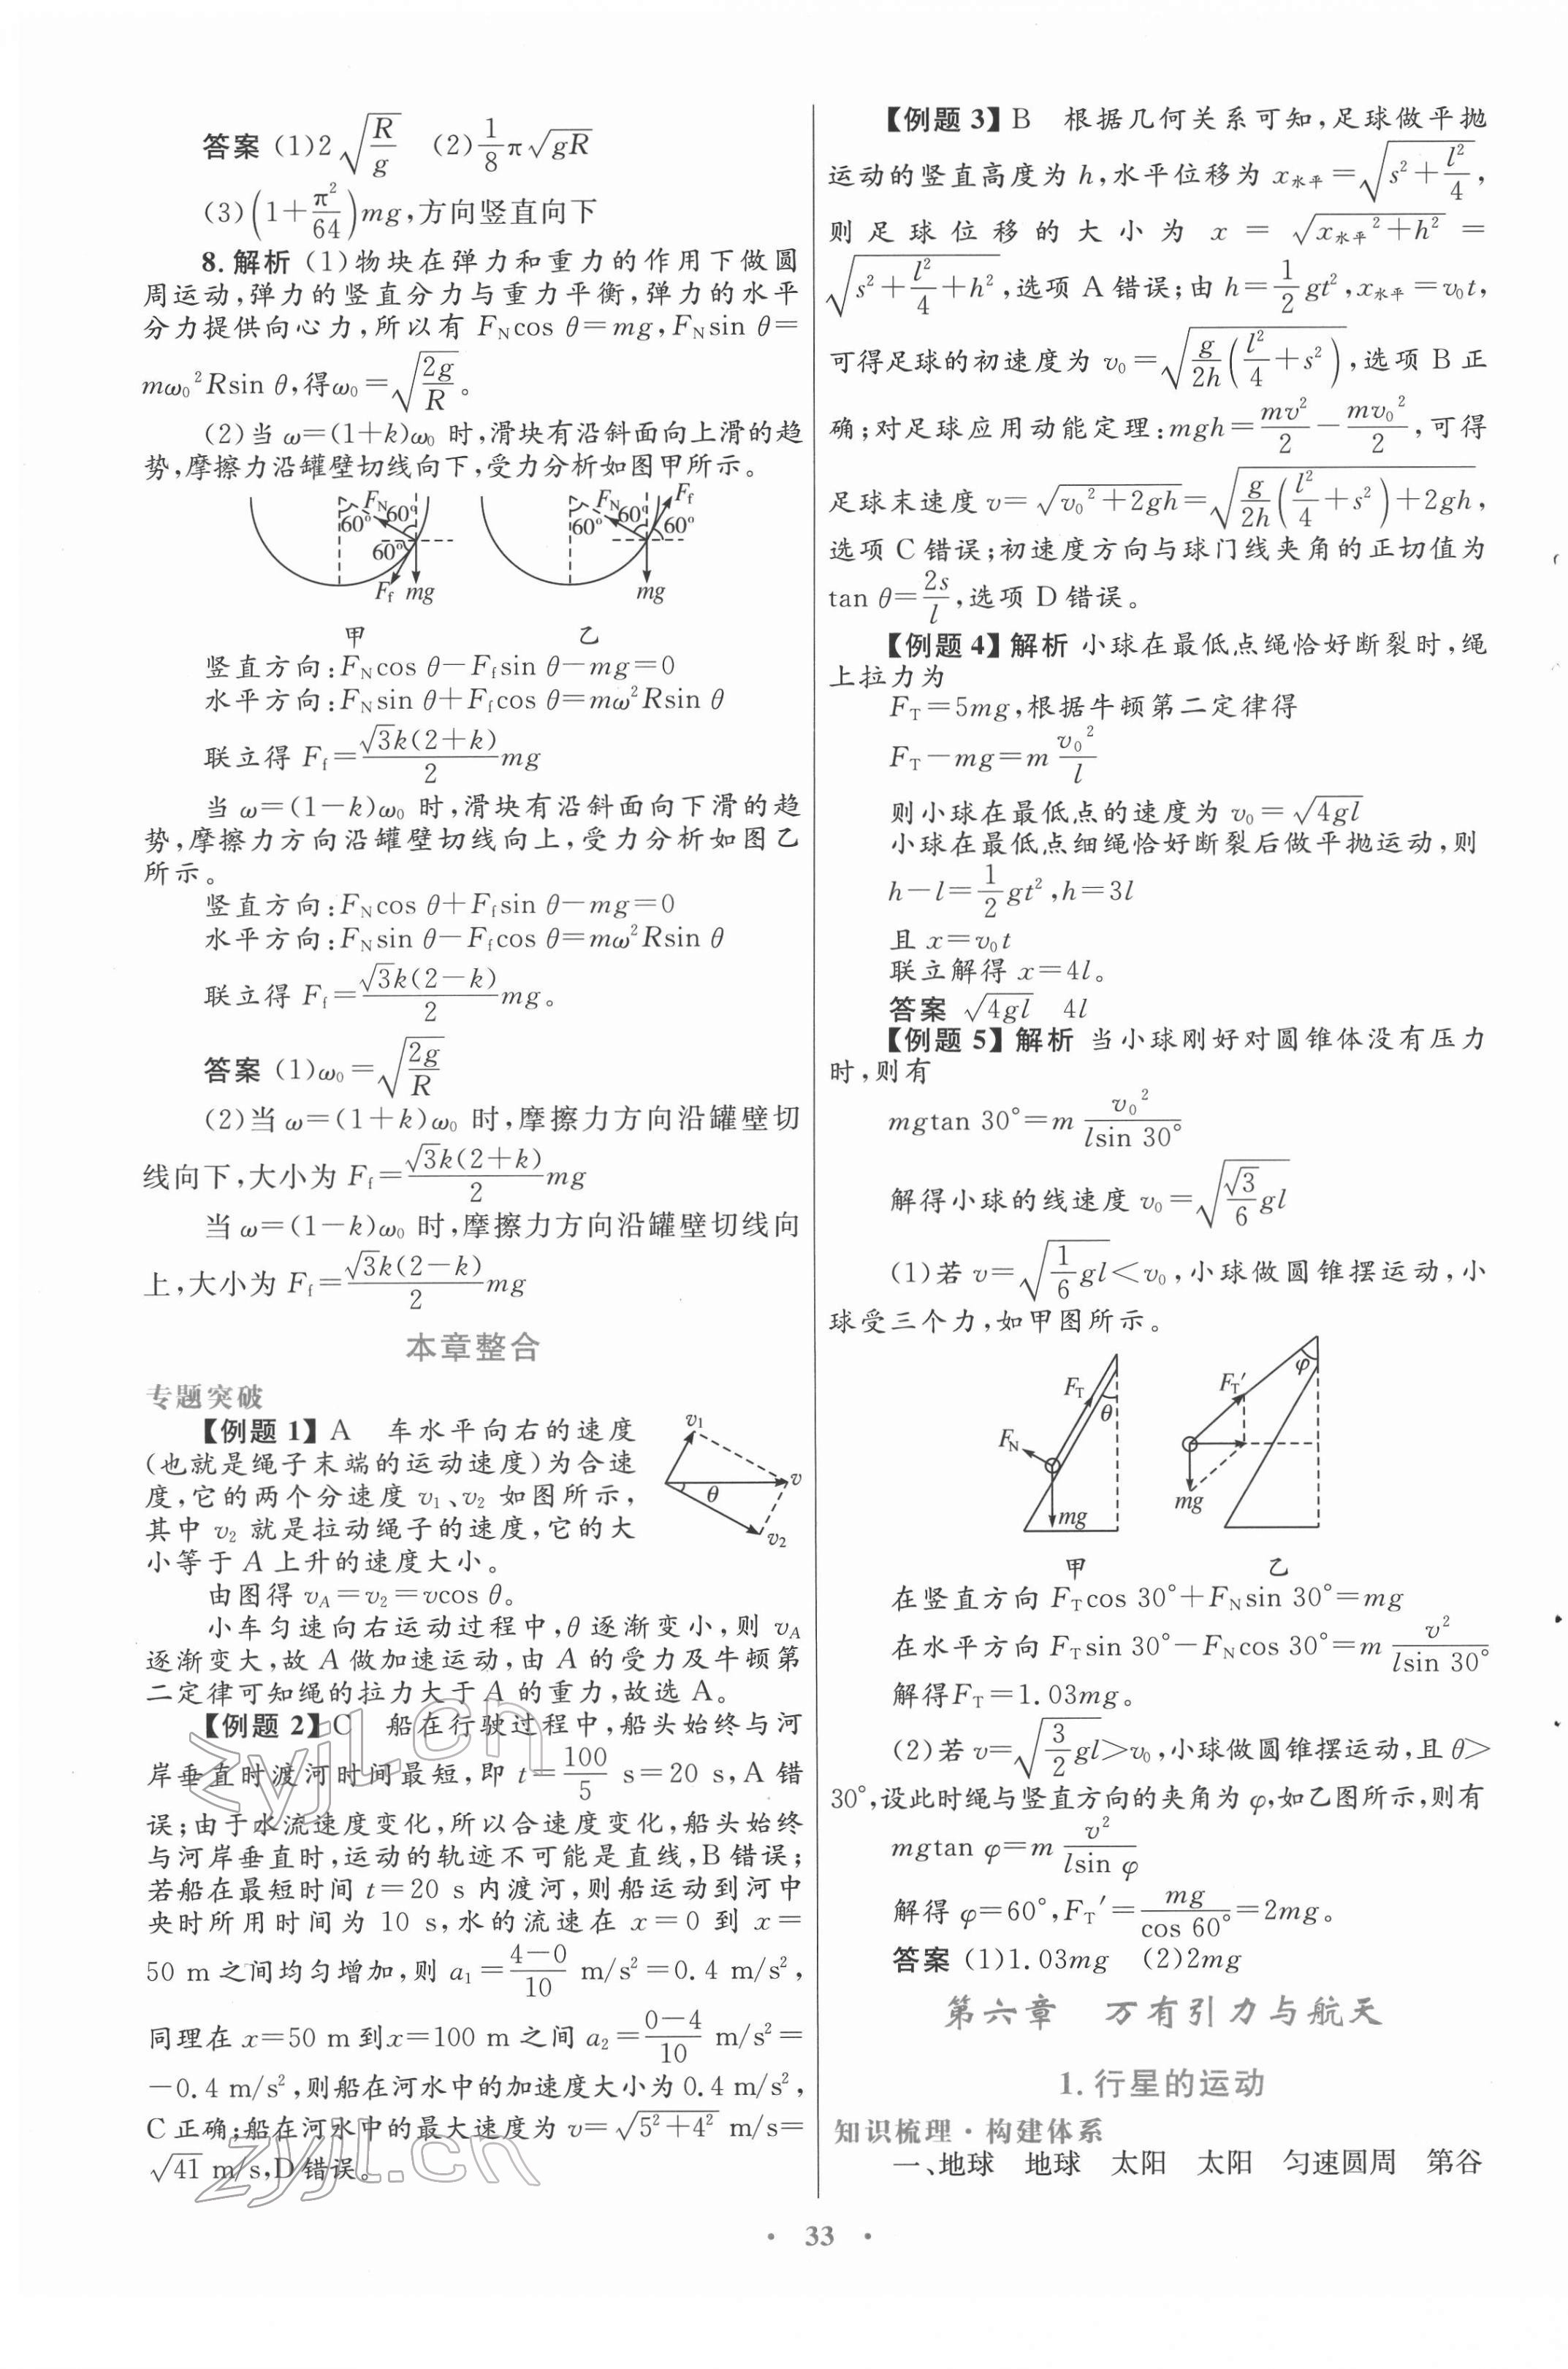 答案 (1)2√(R/g)　(2)1/8 π√(gR)
(3)(1+π²/64)mg,方向竖直向下
8.解析 (1)物块在弹力和重力的作用下做圆
周运动,弹力的竖直分力与重力平衡,弹力的水平
分力提供向心力,所以有 F_N cos θ=mg,F_N sin θ=
mω₀²Rsin θ,得ω₀=√(2g/R)。
(2)当 ω=(1+k)ω₀ 时,滑块有沿斜面向上滑的趋
势,摩擦力沿罐壁切线向下,受力分析如图甲所示。
F_N 60° 60° 60° F_f mg
F_N F_f 60° 60° 60° mg
甲　乙
竖直方向:F_N cos θ-F_f sin θ-mg=0
水平方向:F_N sin θ+F_f cos θ=mω²Rsin θ
联立得 F_f=√3k(2+k)/2 mg
当 ω=(1-k)ω₀ 时,滑块有沿斜面向下滑的趋
势,摩擦力方向沿罐壁切线向上,受力分析如图乙
所示。
竖直方向:F_N cos θ+F_f sin θ-mg=0
水平方向:F_N sin θ-F_f cos θ=mω²Rsin θ
联立得 F_f=√3k(2-k)/2 mg。
答案 (1)ω₀=√(2g/R)
(2)当 ω=(1+k)ω₀ 时,摩擦力方向沿罐壁切
线向下,大小为 F_f=√3k(2+k)/2 mg
当 ω=(1-k)ω₀ 时,摩擦力方向沿罐壁切线向
上,大小为 F_f=√3k(2-k)/2 mg
本章整合
专题突破
【例题 1】A　车水平向右的速度
(也就是绳子末端的运动速度)为合速
度,它的两个分速度 v₁、v₂ 如图所示,
其中 v₂ 就是拉动绳子的速度,它的大
小等于 A 上升的速度大小。
v₁ v θ v₂
由图得 v_A=v₂=vcos θ。
小车匀速向右运动过程中,θ 逐渐变小,则 v_A
逐渐变大,故 A 做加速运动,由 A 的受力及牛顿第
二定律可知绳的拉力大于 A 的重力,故选 A。
【例题 2】C　船在行驶过程中,船头始终与河
岸垂直时渡河时间最短,即 t=100/5 s=20 s,A 错
误;由于水流速度变化,所以合速度变化,船头始终
与河岸垂直时,运动的轨迹不可能是直线,B 错误;
若船在最短时间 t=20 s 内渡河,则船运动到河中
央时所用时间为 10 s,水的流速在 x=0 到 x=
50 m 之间均匀增加,则 a₁=(4-0)/10 m/s²=0.4 m/s²,
同理在 x=50 m 到x=100 m 之间 a₂=(0-4)/10 m/s²=
-0.4 m/s²,则船在河水中的加速度大小为 0.4 m/s²,
C 正确;船在河水中的最大速度为 v=√(5²+4²) m/s=
√41 m/s,D 错误。
【例题 3】B　根据几何关系可知,足球做平抛
运动的竖直高度为 h,水平位移为 x水平=√(s²+l²/4),
则足球位移的大小为 x=√(x水平²+h²)=
√(s²+l²/4+h²),选项 A 错误;由 h=1/2 gt²,x水平=v₀t,
可得足球的初速度为 v₀=√(g/2h(l²/4+s²)),选项 B 正
确;对足球应用动能定理:mgh=mv²/2-mv₀²/2,可得
足球末速度 v=√(v₀²+2gh)=√(g/2h(l²/4+s²)+2gh),
选项 C 错误;初速度方向与球门线夹角的正切值为
tan θ=2s/l,选项 D 错误。
【例题 4】解析 小球在最低点绳恰好断裂时,绳
上拉力为
F_T=5mg,根据牛顿第二定律得
F_T-mg=m v₀²/l
则小球在最低点的速度为 v₀=√(4gl)
小球在最低点细绳恰好断裂后做平抛运动,则
h-l=1/2 gt²,h=3l
且 x=v₀t
联立解得 x=4l。
答案 √(4gl)　4l
【例题 5】解析 当小球刚好对圆锥体没有压力
时,则有
mgtan 30°=m v₀²/(lsin 30°)
解得小球的线速度 v₀=√(√3/6 gl)
(1)若 v=√(1/6 gl)<v₀,小球做圆锥摆运动,小
球受三个力,如甲图所示。
F_T θ F_N mg
φ F_T′ mg
甲　乙
在竖直方向 F_T cos 30°+F_N sin 30°=mg
在水平方向 F_T sin 30°-F_N cos 30°=m v²/(lsin 30°)
解得F_T=1.03mg。
(2)若 v=√(3/2 gl)>v₀,小球做圆锥摆运动,且 θ>
30°,设此时绳与竖直方向的夹角为 φ,如乙图所示,则有
mgtan φ=m v²/(lsin φ)
解得 φ=60°,F_T′=mg/cos 60°=2mg。
答案 (1)1.03mg　(2)2mg
第六章　万有引力与航天
1.行星的运动
知识梳理·构建体系
一、地球　地球　太阳　太阳　匀速圆周　第谷
· 33 ·
zyjl.cn
zyjl.cn